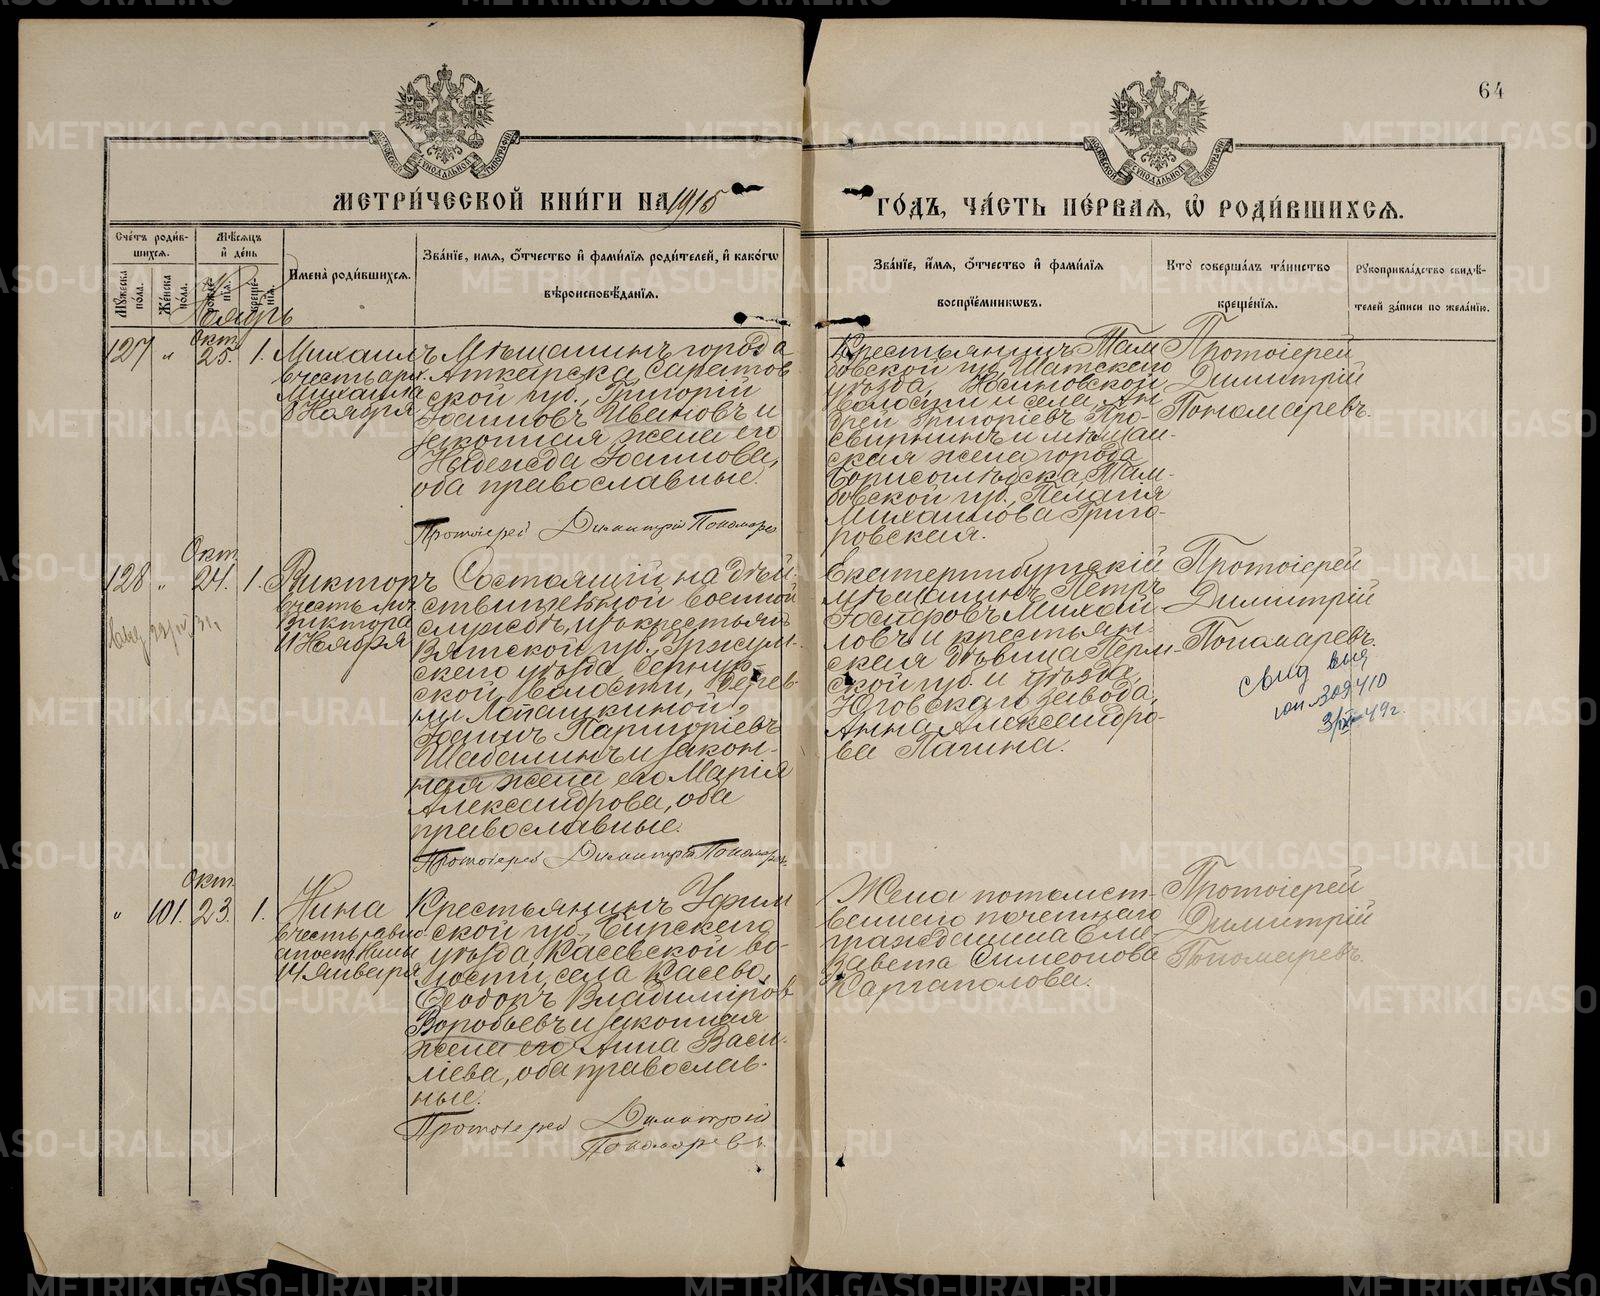 64
МЕТРИ́ЧЕСКОЙ КНИ́ГИ НА 1915
ГО́ДЪ, ЧА́СТЬ ПЕ́РВАЯ, Ѡ РОДИ́ВШИХСЯ.
Сче́тъ роди́в-
шихся.
Мѣ́сяцъ
и҆ де́нь
Мꙋ́жеска
по́ла.
Же́нска
по́ла.
рожде-
нія.
креще-
нія.
И҆мена̀ роди́вшихся.
Зва́нїе, и҆мя, ѻ҆́тчество и҆ фами́лїя роди́телей, и҆ како́гѡ
вѣроисповѣ́данїя.
Зва́нїе, и҆́мя, ѻ҆́тчество и҆ фами́лїя
воспрїе́мникѡвъ.
Кто̀ соверша́лъ та́инство
креще́нїя.
Рꙋкоприкла́дство свидѣ́-
телей за́писи по жела́нїю.
Ноябрь
127 " Окт. 25. 1.
Михаилъ
в честь арх.
Михаила
8 Ноября
Мѣщанинъ города
Аткарска Саратов
ской губ., Григорій
Іоанновъ Ивановъ и
законная жена его
Надежда Іоаннова,
оба православные.
Протоіерей Димитрій Пономарев
Крестьянинъ Там
бовской губ., Шатскаго
уѣзда,
волости и села, Ан
дрей Григоріевъ Про-
свирнинъ и мѣщан-
ская жена города
Борисоглѣбска Там-
бовской губ., Пелагія
Михаилова Григо-
ровская.
Протоіерей
Димитрій
Пономаревъ.
128 " Окт. 24. 1.
Викторъ
в честь муч.
Виктора
11 Ноября
Состоящій на дѣй-
ствительной военной
службѣ, изъ крестьянъ
Вятской губ., Уржум-
скаго уѣзда Сернур-
ской волости, дерев-
ни Лопашкиной,
Іоаннъ
Шабалинъ и закон-
ная жена его Марія
Александрова, оба
православные.
Протоіерей Димитрій Пономаревъ
Екатеринбургскій
мѣщанинъ Петръ
Іосифовъ Михай-
ловъ и крестьян-
ская дѣвица Перм-
ской губ. и уѣзда,
Юговскаго завода,
Анна Александро-
ва Пагина.
Протоіерей
Димитрій
Пономаревъ.
свид выд
309410
49г.
" 101. Окт. 23. 1.
Нина
в честь равно
апост. Нины
14 Января
Крестьянинъ Уфим
ской губ., Бирскаго
уѣзда Касевской во-
лости, села Касево,
Ѳеодоръ Владиміров
Воробьевъ и законная
жена его Анна Васи-
ліева, оба православ-
ные.
Протоіерей Димитрій
Пономаревъ.
Жена потомст-
веннаго почетнаго
гражданина Ели-
завета Симеонова
Каргаполова.
Протоіерей
Димитрій
Пономаревъ.
METRIKI.GASO-URAL.RU